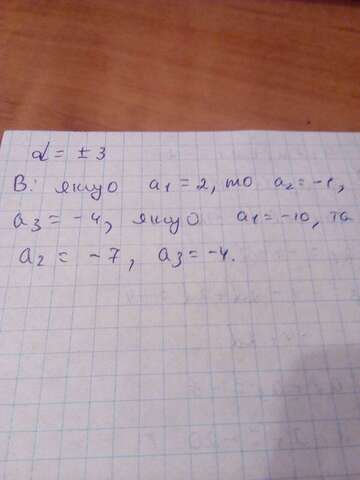 d = ± 3
В: якщо a₁ = 2, то a₂ = -1,
a₃ = -4, якщо a₁ = -10, то
a₂ = -7, a₃ = -4.